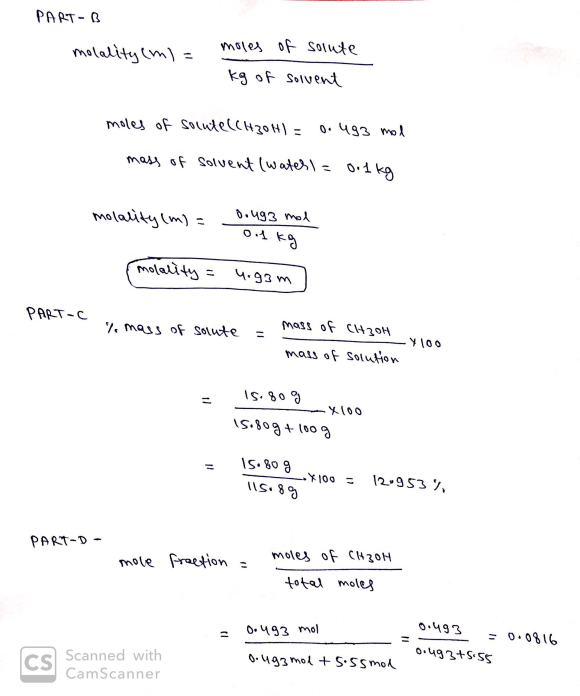 PART-B
molality(m) = moles of solute
kg of solvent
moles of solute(CH3OH) = 0.493 mol
mass of solvent (water) = 0.1 kg
molality(m) = 0.493 mol
0.1 kg
molality = 4.93 m
PART-C
% mass of solute = mass of CH3OH ×100
mass of solution
= 15.80 g ×100
15.80g + 100 g
= 15.80 g ×100 = 12.953 %
115.8g
PART-D -
mole fraction = moles of CH3OH
total moles
= 0.493 mol = 0.493 = 0.0816
0.493mol + 5.55mol 0.493+5.55
CS Scanned with
CamScanner